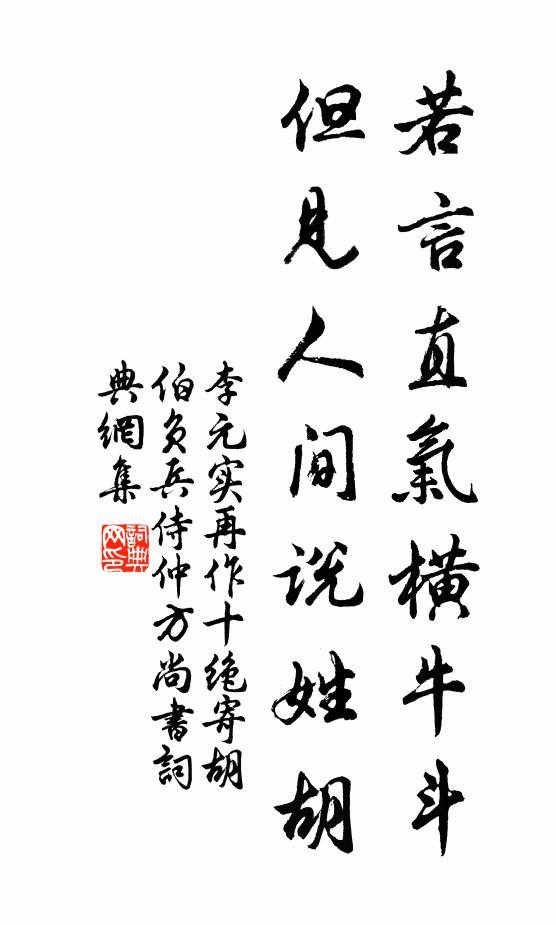 若言直氣橫牛斗
但見人間説姓胡
李元实再作十绝寄胡
伯負兵侍仲方尚書詞
典網集
詞典
网印